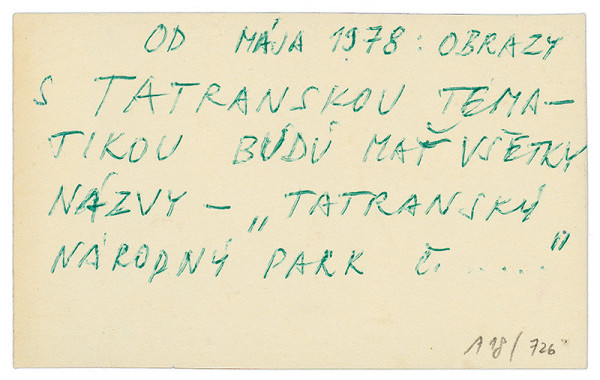 OD MÁJA 1978: OBRAZY
S TATRANSKOU TÉMA-
TIKOU BÚDÚ MAŤ VŠETKY
NÁZVY – „TATRANSKÝ
NÁRODNÝ PARK Č. ....."
A 18/726